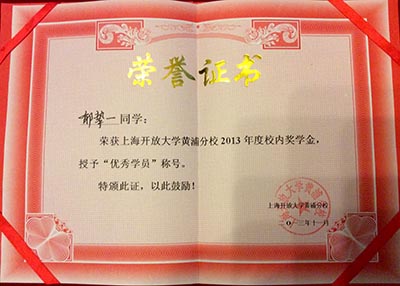 荣誉证书
郁挚一同学：
荣获上海开放大学黄浦分校2013年度校内奖学金，
授予“优秀学员”称号。
特颁此证，以此鼓励！
上海开放大学黄浦分校
二〇一三年十一月